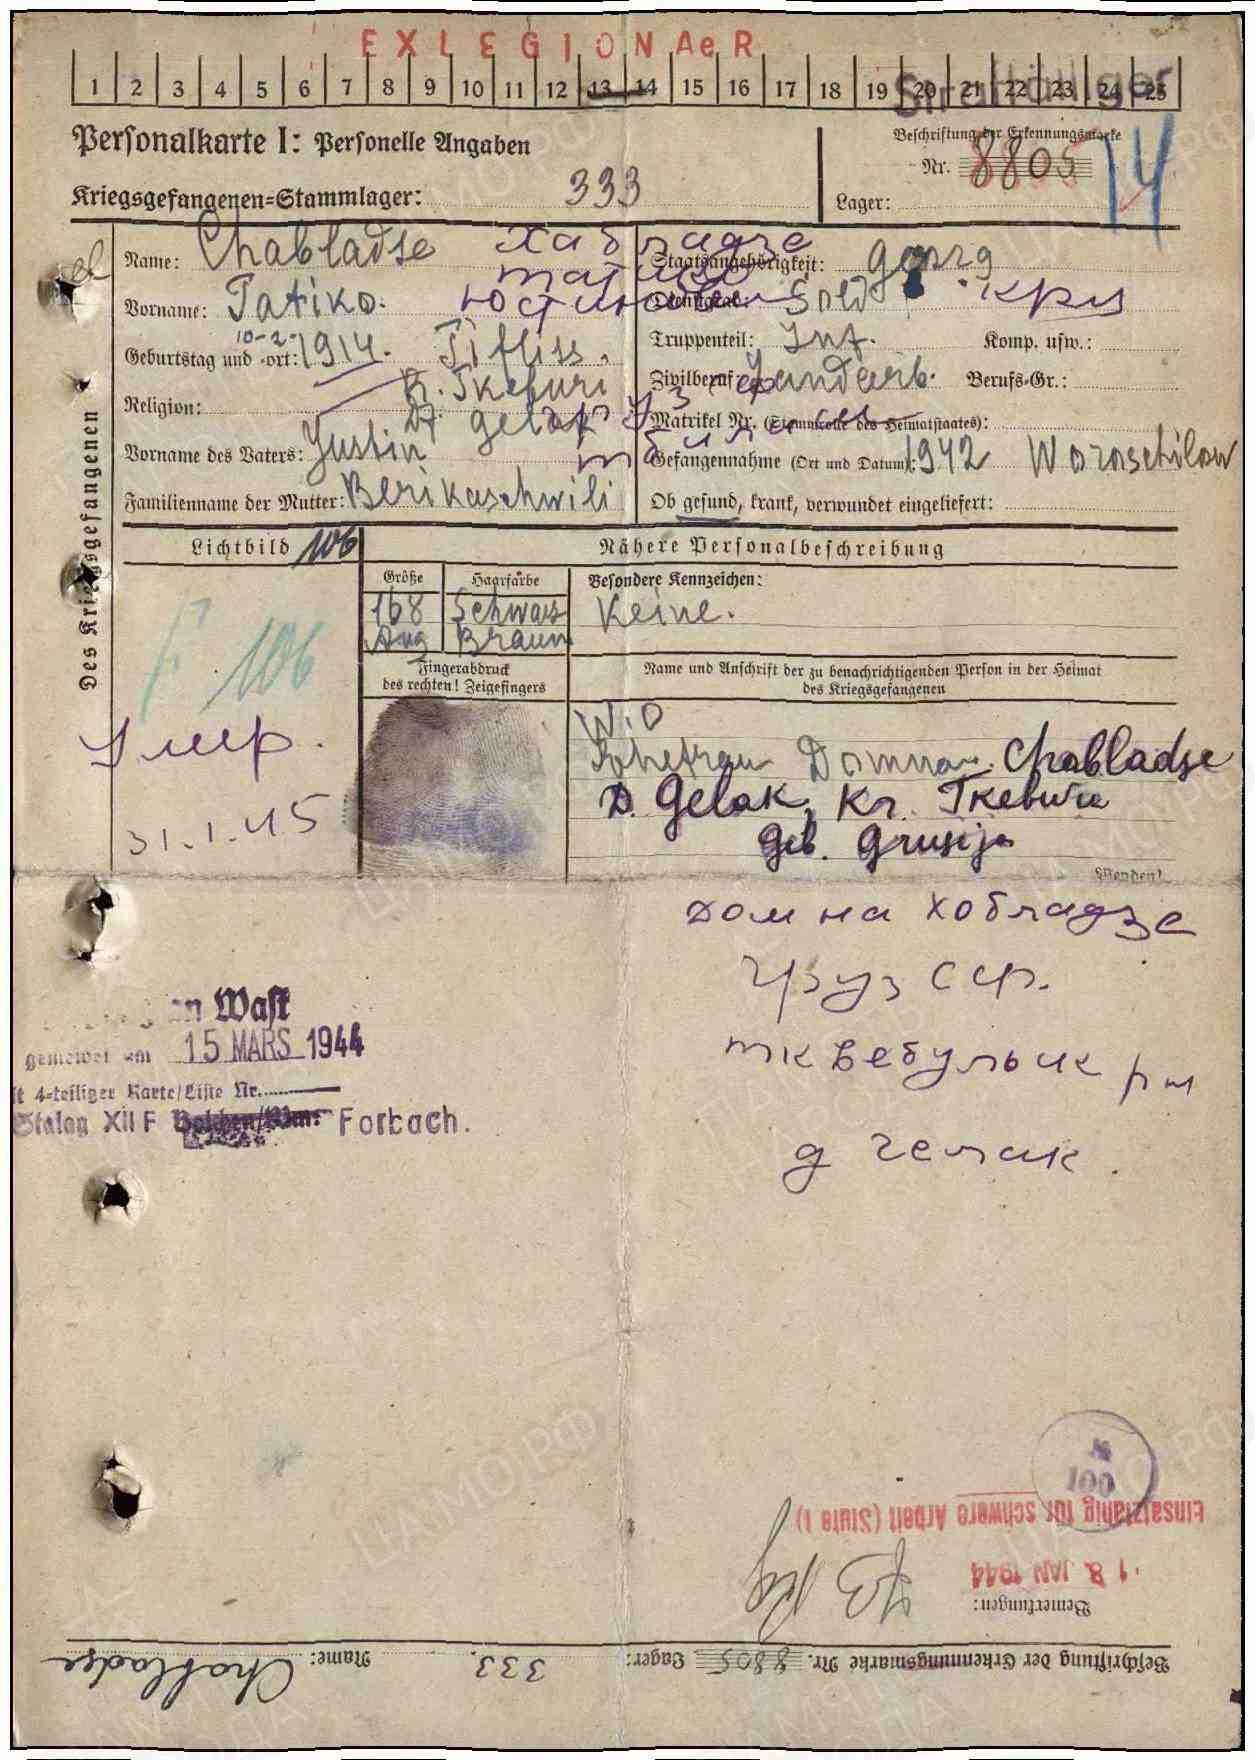 EXLEGIONAeR
1 2 3 4 5 6 7 8 9 10 11 12 13 14 15 16 17 18 19 20 21 22 23 24 25
Personalkarte I: Personelle Angaben
Beschriftung der Erkennungsmarke
Nr. 8805
14
Kriegsgefangenen=Stammlager: 333
Lager:
Des Kriegsgefangenen
Name: Chabladse
Хабладзе
Staatsangehörigkeit:
Vorname: Tatiko.
Dienstgrad: Sold
Geburtstag und -ort: 10-2- 1914. Tifliss.
Truppenteil: Inf. Komp. usw.:
K. Tkeburi
Zivilberuf: Landarb. Berufs-Gr.:
Religion:
D. Gelak
Matrikel Nr. (Stammrolle des Heimatstaates):
Vorname des Vaters: Justin
Gefangennahme (Ort und Datum): 1942 Woroschilow
Familienname der Mutter: Berikaschwili
Ob gesund, krank, verwundet eingeliefert:
Lichtbild 106
Nähere Personalbeschreibung
Größe
Haarfarbe
Besondere Kennzeichen:
168
Schwarz
Keine.
Aug
Braun
F 106
Fingerabdruck
des rechten! Zeigefingers
Name und Anschrift der zu benachrichtigenden Person in der Heimat
des Kriegsgefangenen
умер.
31.1.45
Domna Chabladse
D. Gelak, Kr. Tkebuli
Geb. Grusija
Wenden!
Домна Хобладзе
Груз ССР.
Тквебульск р н
д гелак.
Wast
gemeldet am 15 MARS 1944
it 4-teiliger Karte/Liste Nr.
Stalag XII F Forbach.
№
100
Einsatzfähig für schwere Arbeit (Stufe I)
18. JAN 1944
Bemerkungen:
Beschriftung der Erkennungsmarke Nr. 8805 Lager: 333 Name: Chabladse